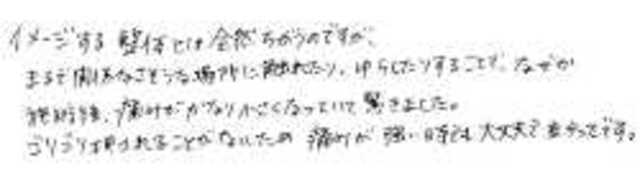 イメージする 整体とは 全然ちがうのですが、
まるで関係なさそうな場所に触れたり、ゆらしたりすることで、なぜか
施術後、痛みがかなり小さくなっていて驚きました。
ゴリゴリ押されることがないため 痛みが 強い時でも 大丈夫で